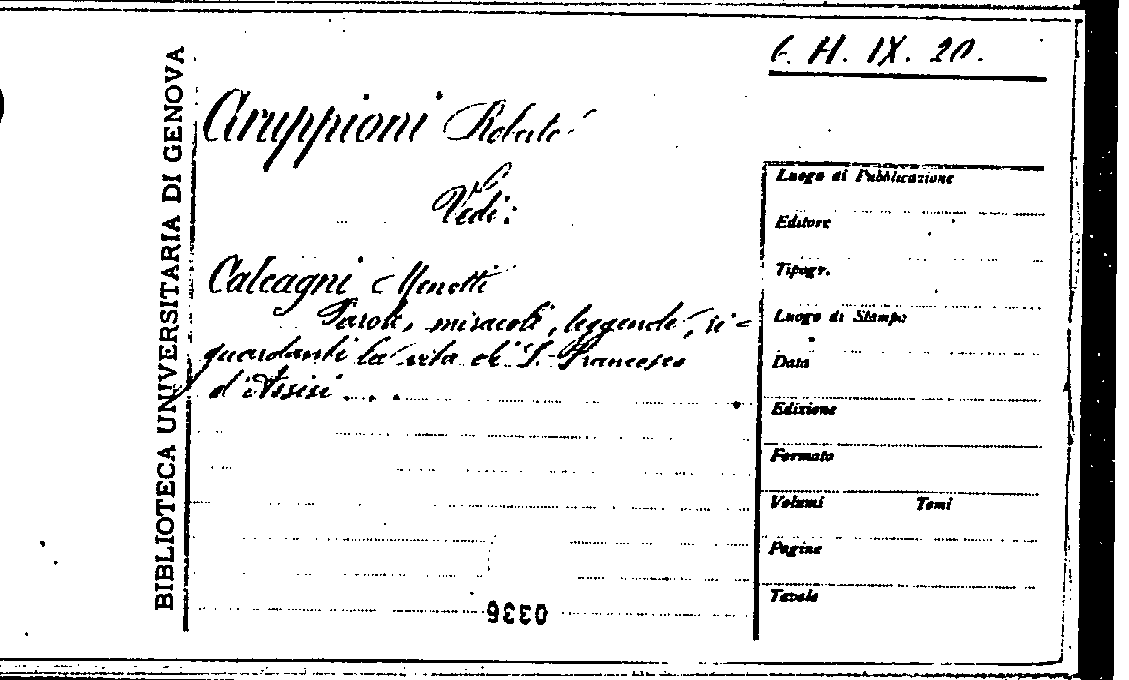 6. H. IX. 20.
BIBLIOTECA UNIVERSITARIA DI GENOVA
Gruppioni Roberto
Vedi:
Calcagni Menotti
Parole, miracoli, leggende, ri=
guardanti la vita di S. Francesco
d'Assisi . . .
Luogo di Pubblicazione
Editore
Tipogr.
Luogo di Stampa
Data
Edizione
Formato
Volumi Tomi
Pagine
Tavole
0336